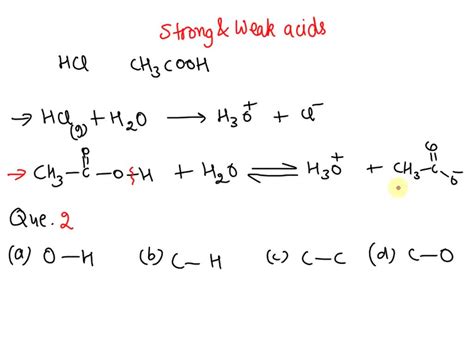 Strong & Weak acids
HCl CH₃COOH
→ HCl(g) + H₂O → H₃O⁺ + Cl⁻
O O
→ CH₃–C–O–H + H₂O ⇌ H₃O⁺ + CH₃–C–O⁻
Que. 2
(a) O–H (b) C–H (c) C–C (d) C–O